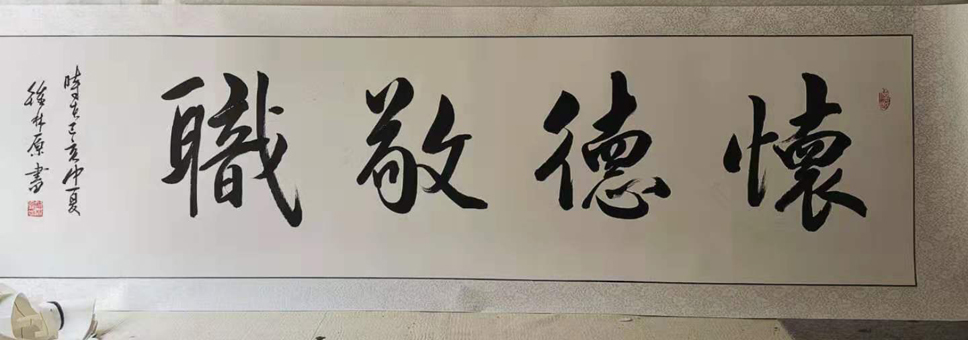 懷德敬職
時在己亥仲夏
徐林原書